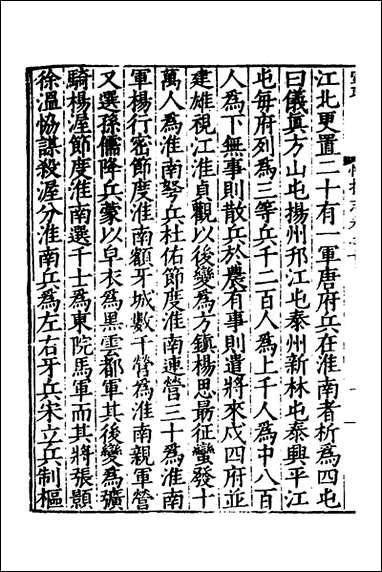 江北更置二十有一軍唐府兵在淮南者析為四屯
曰儀真方山屯揚州邗江屯泰州新林屯泰興平江
屯每府列為三等兵千二百人為上千人為中八百
人為下無事則散兵於農有事則遣將來戍四府並
建雄視江淮貞觀以後變為方鎮楊思最征蠻發十
萬人為淮南弩兵杜佑節度淮南連營三十為淮南
軍楊行密節度淮南額牙城數千營為淮南親軍營
又選孫儒降兵蒙以皁衣為黑雲都軍其後變為獷
騎楊渥節度淮南選千士為東院馬軍而其將張顥
徐溫恊謀殺渥分淮南兵為左右牙兵宋立兵制樞